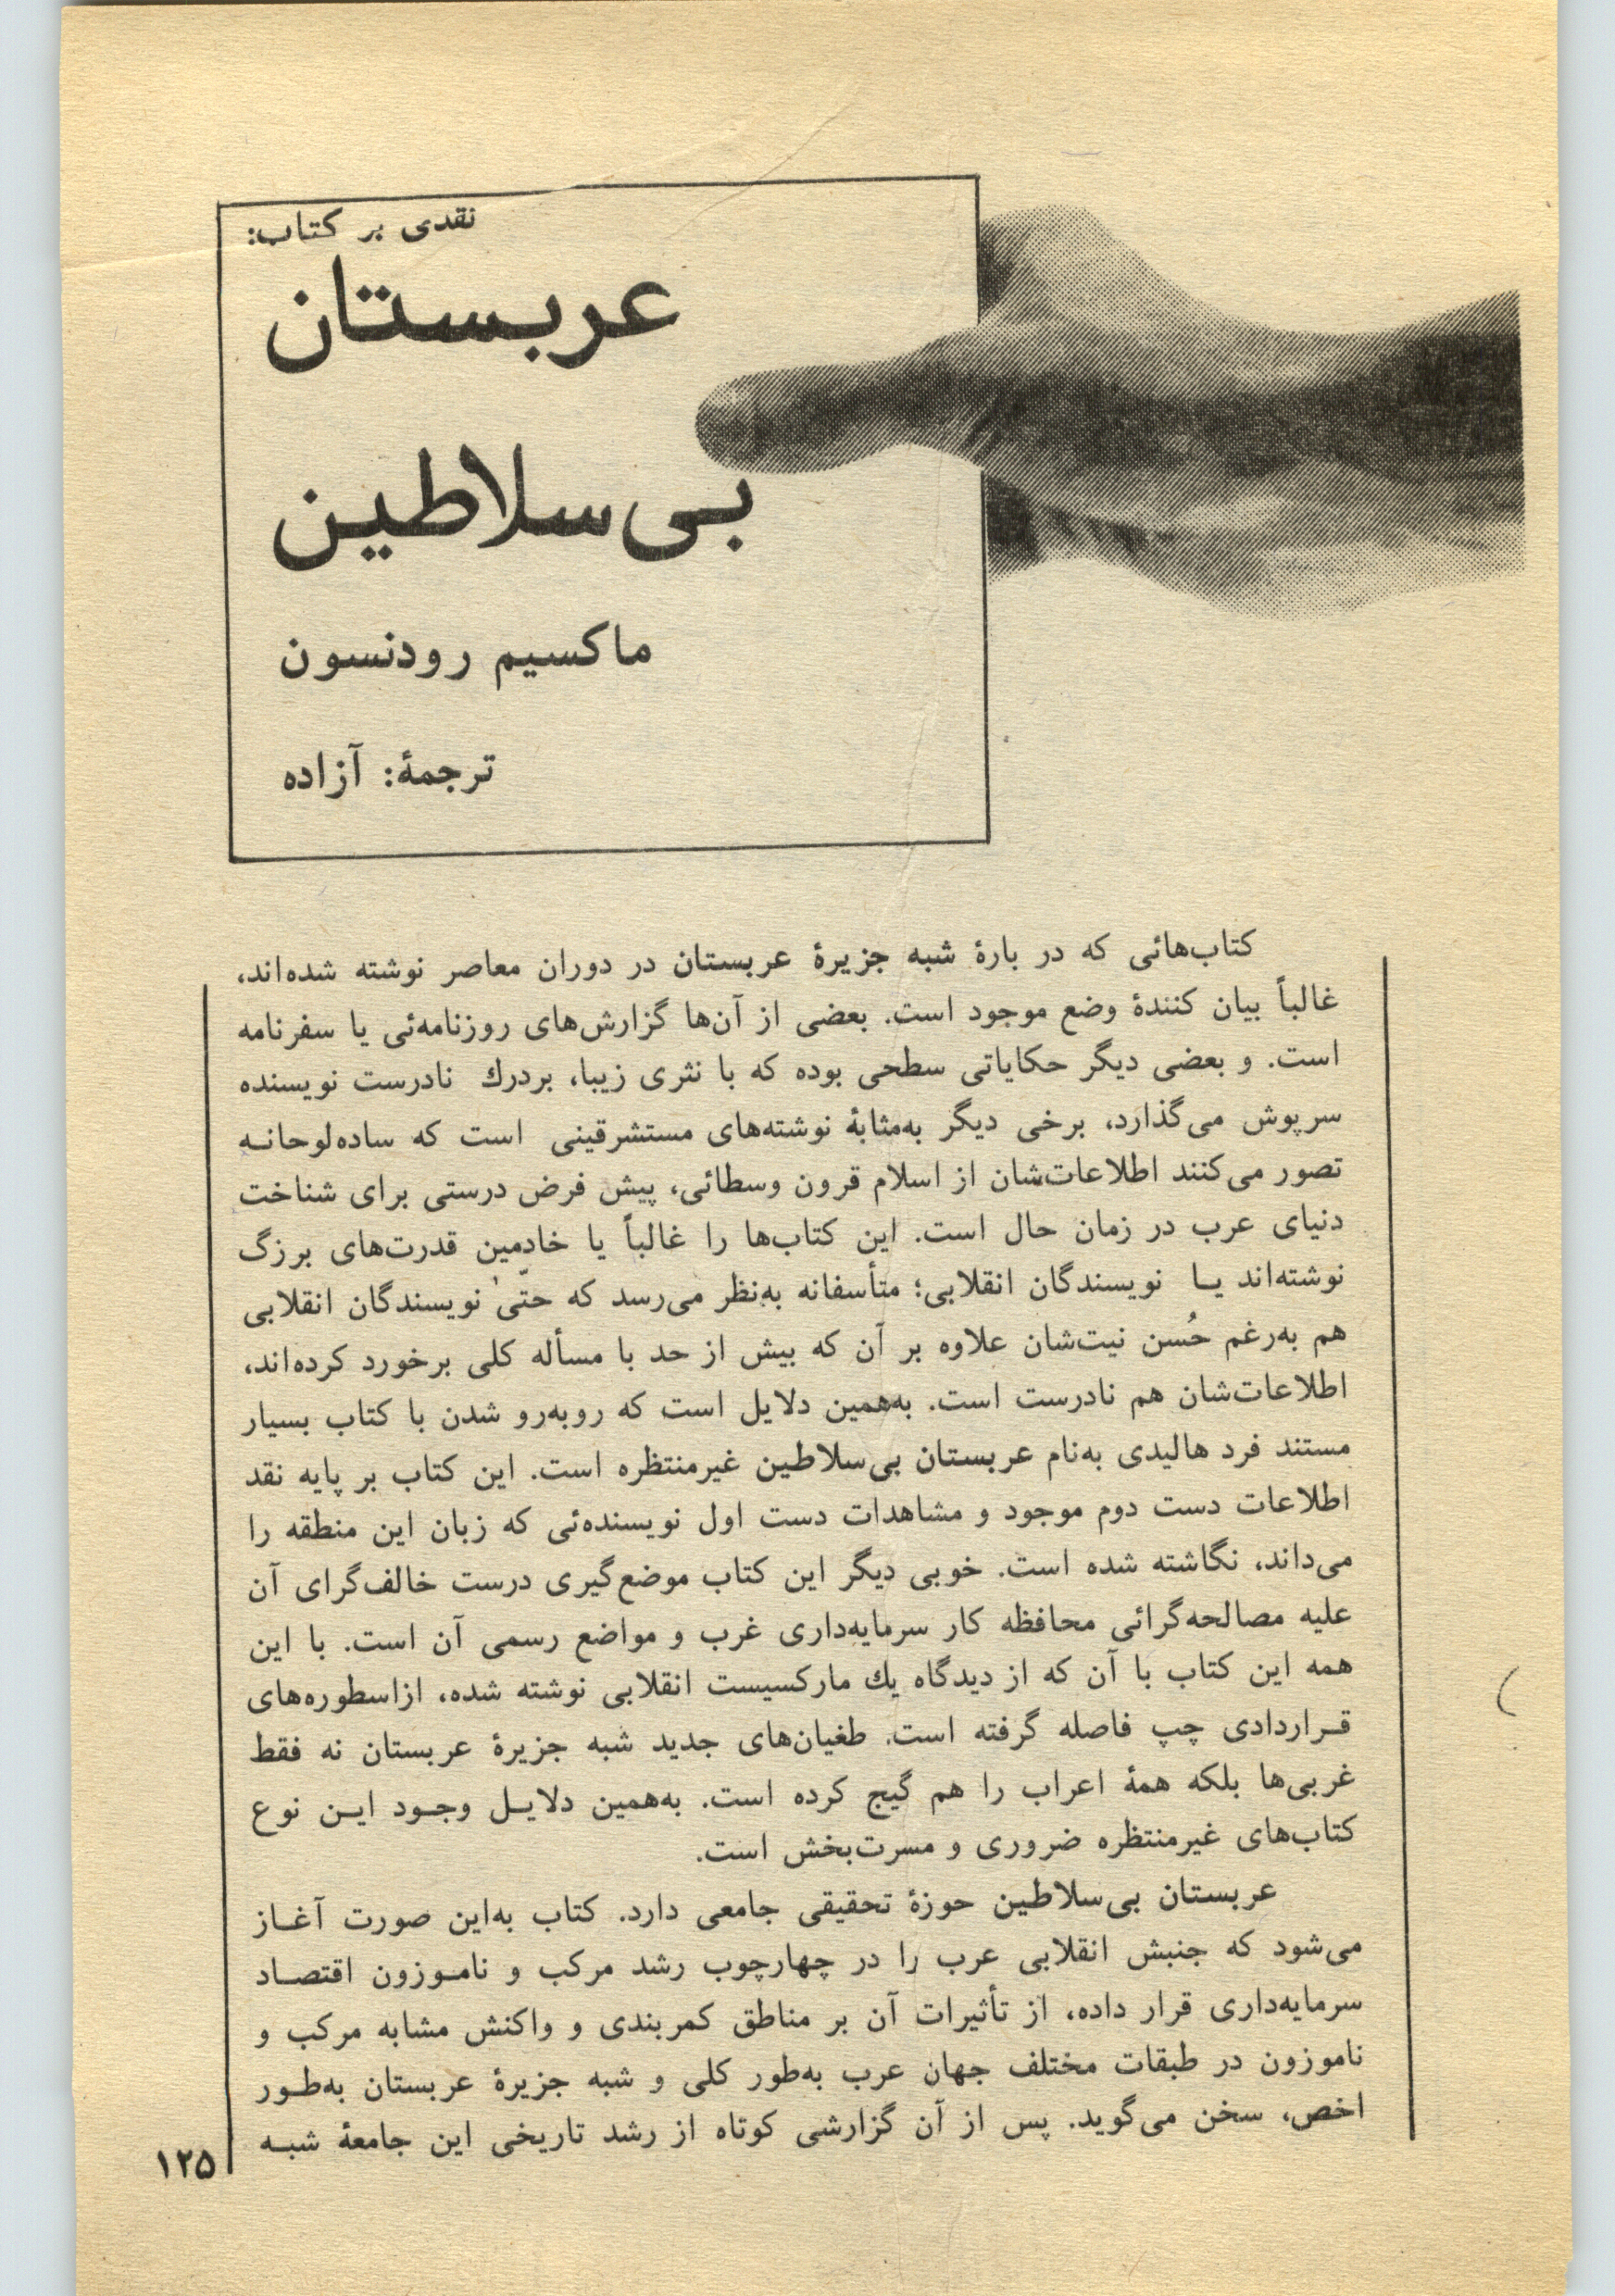 نقدی بر کتاب:
عربستان
بی‌سلاطین
ماکسیم رودنسون
ترجمهٔ: آزاده
کتاب‌هائی که در بارهٔ شبه جزیرهٔ عربستان در دوران معاصر نوشته شده‌اند،
غالباً بیان کنندهٔ وضع موجود است. بعضی از آن‌ها گزارش‌های روزنامه‌ئی یا سفرنامه
است. و بعضی دیگر حکایاتی سطحی بوده که با نثری زیبا، بردرك نادرست نویسنده
سرپوش می‌گذارد، برخی دیگر به‌مثابهٔ نوشته‌های مستشرقینی است که ساده‌لوحانـه
تصور می‌کنند اطلاعات‌شان از اسلام قرون وسطائی، پیش فرض درستی برای شناخت
دنیای عرب در زمان حال است. این کتاب‌ها را غالباً یا خادمین قدرت‌های بزرگ
نوشته‌اند یـا نویسندگان انقلابی؛ متأسفانه به‌نظر می‌رسد که حتّیٰ نویسندگان انقلابی
هم به‌رغم حُسن نیت‌شان علاوه بر آن که بیش از حد با مسأله کلی برخورد کرده‌اند،
اطلاعات‌شان هم نادرست است. به‌همین دلایل است که روبه‌رو شدن با کتاب بسیار
مستند فرد هالیدی به‌نام عربستان بی‌سلاطین غیرمنتظره است. این کتاب بر پایه نقد
اطلاعات دست دوم موجود و مشاهدات دست اول نویسنده‌ئی که زبان این منطقه را
می‌داند، نگاشته شده است. خوبی دیگر این کتاب موضع‌گیری درست خالف‌گرای آن
علیه مصالحه‌گرائی محافظه کار سرمایه‌داری غرب و مواضع رسمی آن است. با این
همه این کتاب با آن که از دیدگاه یك مارکسیست انقلابی نوشته شده، ازاسطوره‌های
قـراردادی چپ فاصله گرفته است. طغیان‌های جدید شبه جزیرهٔ عربستان نه فقط
غربی‌ها بلکه همهٔ اعراب را هم گیج کرده است. به‌همین دلایـل وجـود ایـن نوع
کتاب‌های غیرمنتظره ضروری و مسرت‌بخش است.
عربستان بی‌سلاطین حوزهٔ تحقیقی جامعی دارد. کتاب به‌این صورت آغـاز
می‌شود که جنبش انقلابی عرب را در چهارچوب رشد مرکب و نامـوزون اقتصـاد
سرمایه‌داری قرار داده، از تأثیرات آن بر مناطق کمربندی و واکنش مشابه مرکب و
ناموزون در طبقات مختلف جهان عرب به‌طور کلی و شبه جزیرهٔ عربستان به‌طـور
اخص، سخن می‌گوید. پس از آن گزارشی کوتاه از رشد تاریخی این جامعهٔ شبـه
۱۲۵